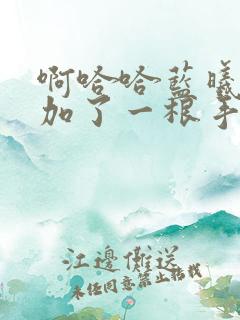 啊哈哈蓝曦
加了一根手
江边傩送
未经同意禁止转载